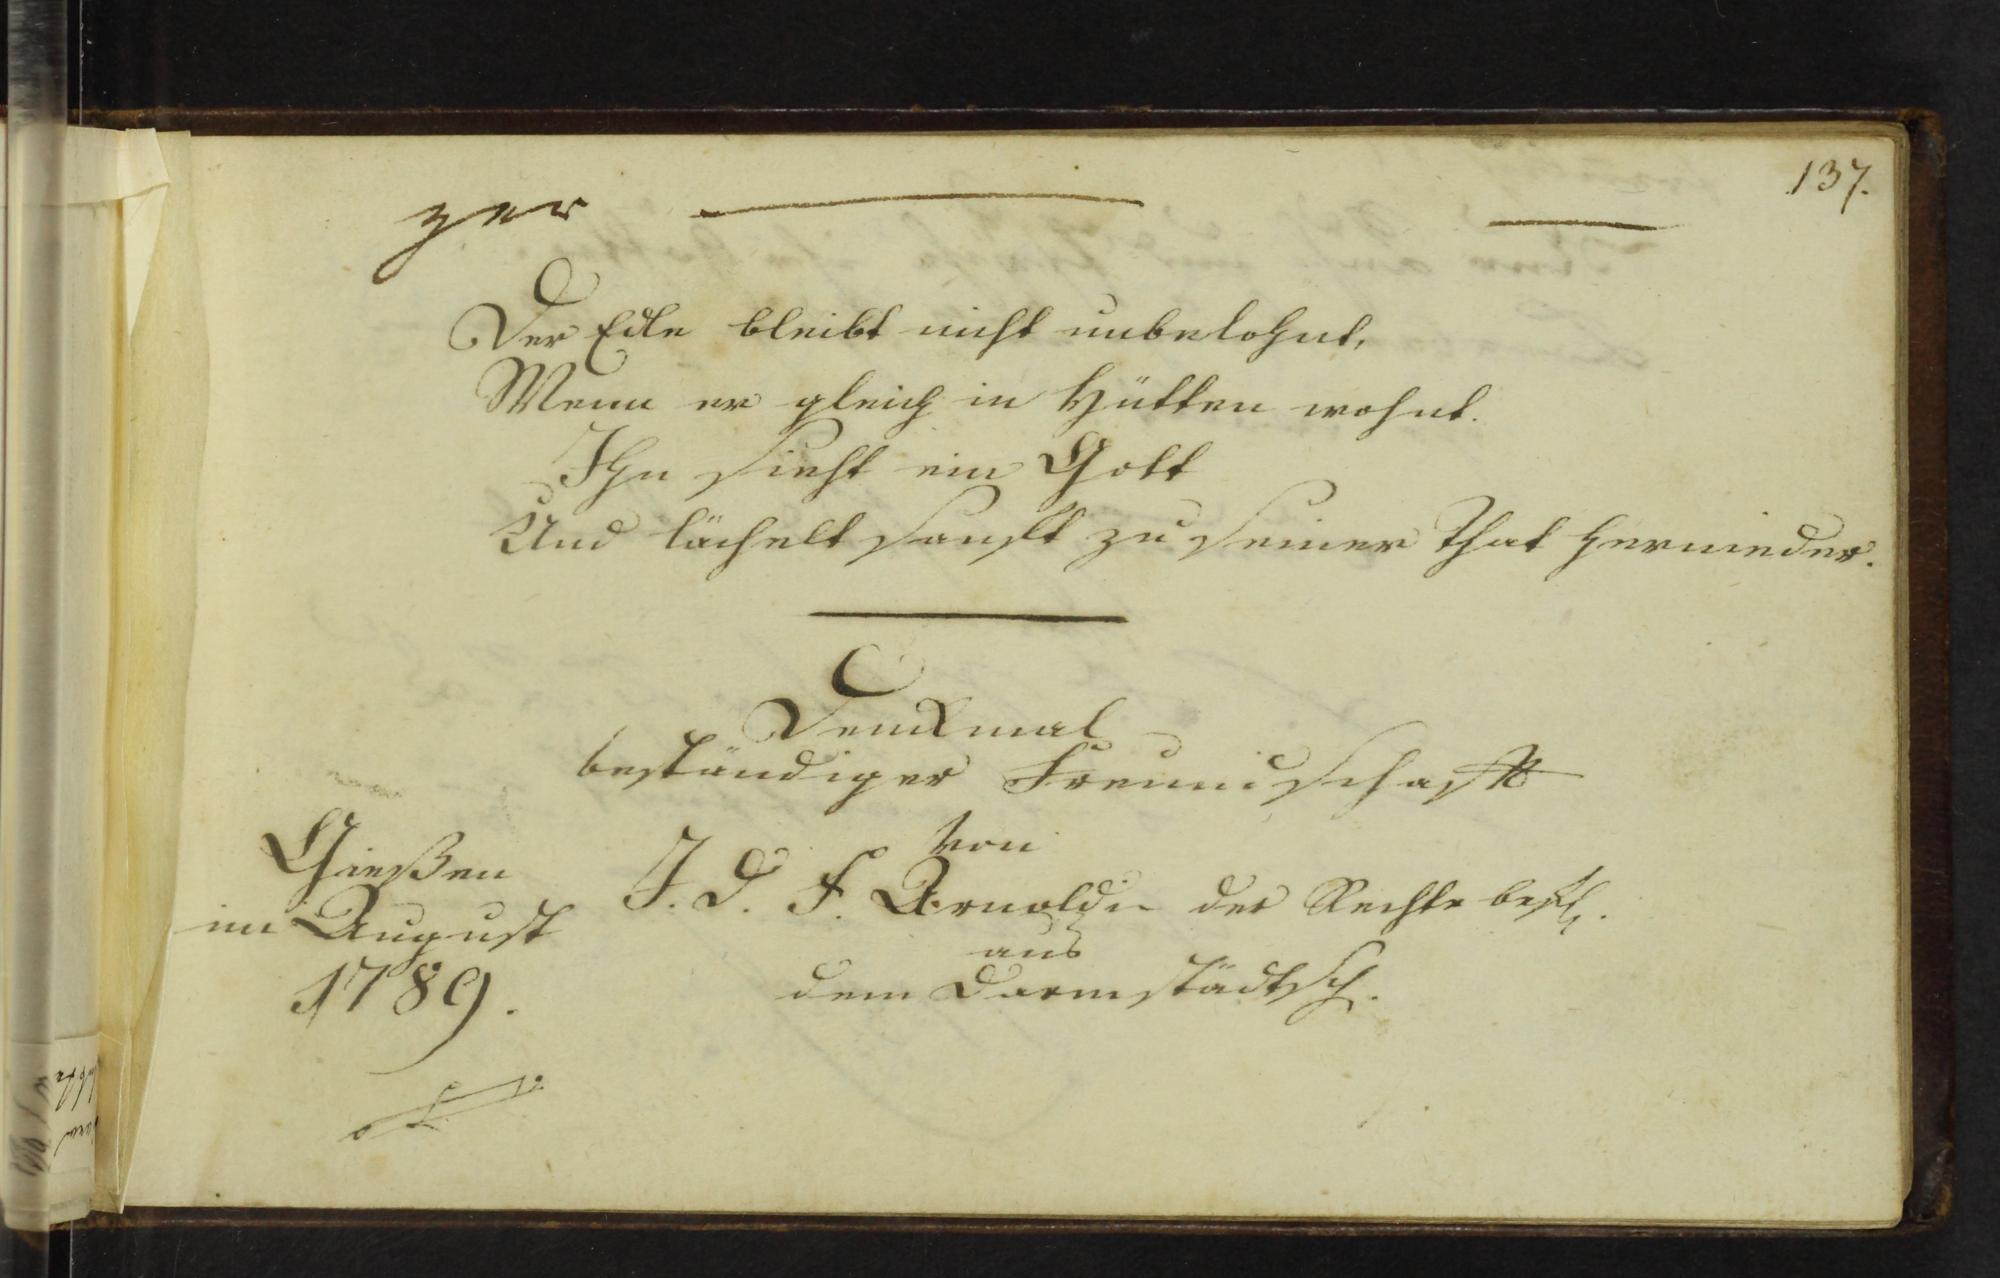 137.
Der Edle bleibt nicht unbelohnt,
Wenn er gleich in Hütten wohnt.
Ihn sieht ein Gott
Und lächelt sanft zu seiner That hernieder.
Denkmal
beständiger Freundschafft
von
J. D. F. Arnoldi der Rechte befl.
aus
dem Darmstädtsch.
Gießen
im August
1789.